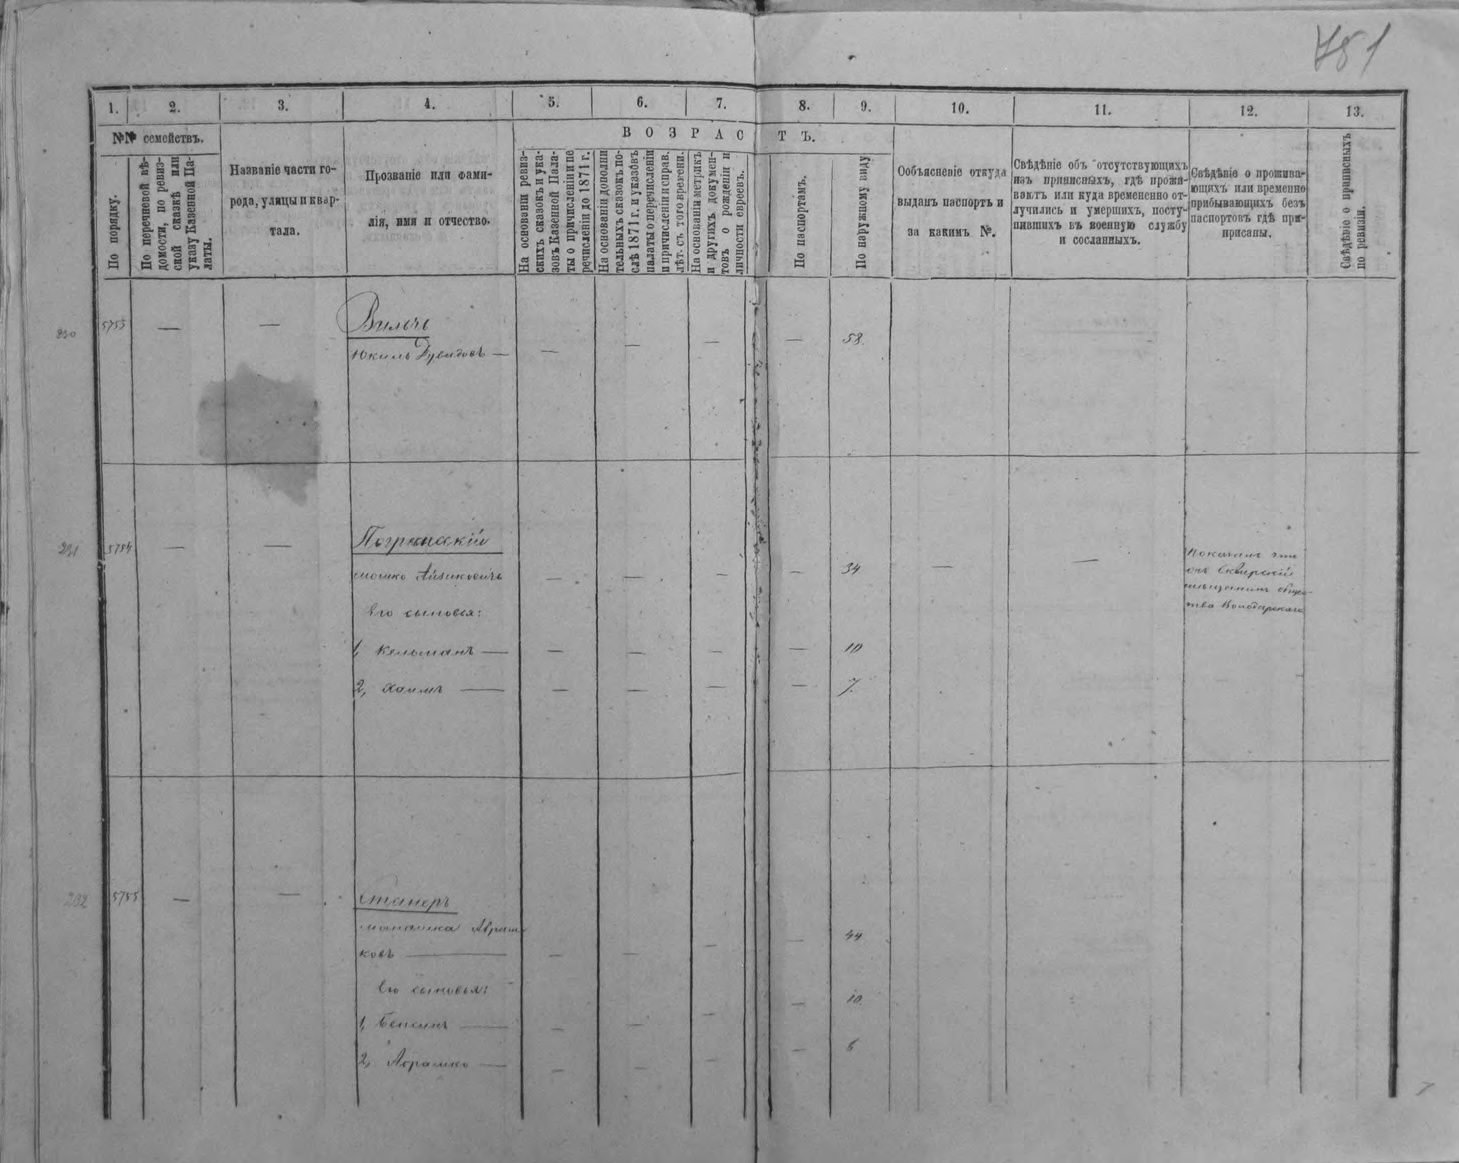 781
1. 2. 3. 4. 5. 6. 7. 8. 9. 10. 11. 12. 13.
№№ семействъ.
ВОЗРАСТЪ.
По порядку.
По перечневой вѣ-
домости, по ревиз-
ской сказкѣ или
указу Казенной Па-
латы.
Названіе части го-
рода, улицы и квар-
тала.
Прозваніе или фами-
лія, имя и отчество.
На основаніи ревиз-
скихъ сказокъ и ука-
зовъ Казенной Пала-
ты о причисленіи и пе
речисленіи до 1871 г.
На основаніи дополни
тельныхъ сказокъ по-
слѣ 1871 г. и указовъ
палаты о перечисленіи
и причисленіи и справ.
лѣт. съ того времени.
На основаніи метрикъ
и другихъ докумен-
товъ о рожденіи и
личности евреевъ.
По паспортамъ.
По наружному виду
Объясненіе откуда
выданъ паспортъ и
за какимъ №.
Свѣдѣніе объ отсутствующихъ
изъ приписныхъ, гдѣ прожи-
ваютъ или куда временно от-
лучились и умершихъ, посту-
пившихъ въ военную службу
и сосланныхъ.
Свѣдѣніе о прожива-
ющихъ или временно
прибывающихъ безъ
паспортовъ гдѣ при-
писаны.
Свѣдѣніе о приписныхъ
по ревизіи.
230 5753 — — Вильчъ
Юкиль Дувидовъ — — — — — 58
231 5754 — — Погребисскій
Мошко Айзиковичъ — — — — 34 — —
Его сыновья:
1, Кельманъ — — — — — 10
2, Хаимъ — — — — — 7
Показалъ что
онъ Сквирскій
мѣщанинъ обще-
тва Володарскаго
232 5755 — — Стаперъ
Авраш
ковъ — — — — — 44
Его сыновья:
1, Бенсинъ — — — — — 10
2, Аврашко — — — — — 8